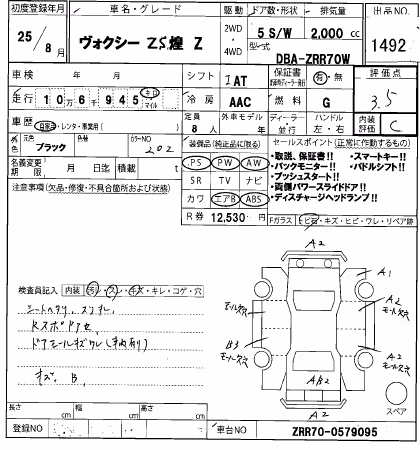 初度登録年月
車名・グレード
駆動
ドア数・形状
排気量
出品NO
25/8月
ヴォクシー ZS煌 Z
2WD・4WD
5 S/W
2,000 cc
1492
型式
DBA-ZRR70W
車検 年 月
シフト
IAT
保証書
有・無
評価点
3.5
走行 10万6千945 キロ マイル
冷房
AAC
燃料
G
内装評価
C
車歴 自家用・レンタ・事業用( )
定員
8人
外車モデル 年
ディーラー・並行
ハンドル
左・右
元色
ブラック
カラーNO
202
装備品(純正品に限る)
セールスポイント(正常に作動するもの)
名義変更期限 月 日迄
積載 t
PS PW AW
SR TV ナビ
カワ エアB ABS
R券 12,530 円
・取説、保証書!!
・バックモニター!!
・プッシュスタート!!
・両側パワースライドドア!!
・ディスチャージヘッドランプ!!
・スマートキー!!
・パドルシフト!!
注意事項(欠品・修復・不具合箇所および状態)
Fガラス トビ石・キズ・ヒビ・ワレ・リペア跡
A2
A1
検査員記入 内装 汚レ・スレ・キズ・キレ・コゲ・穴
シートヘタリ、
A2
キズ、B
A2
A2
スペア
長さ cm
幅 cm
高さ cm
登録NO
車台NO
ZRR70-0579095